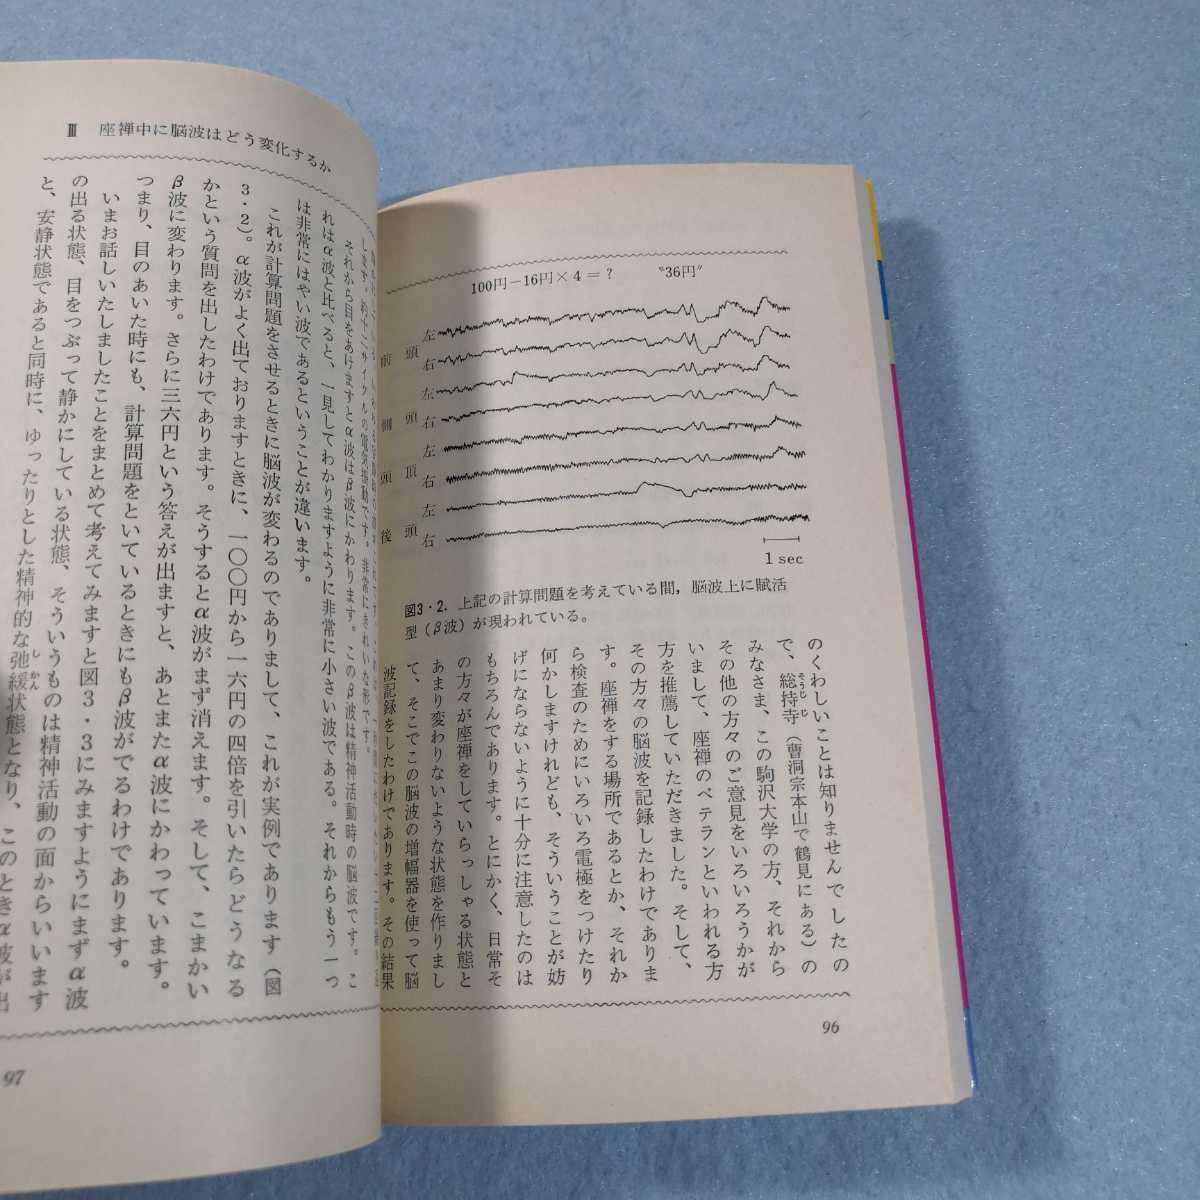 100円−16円×4＝？　〝36円〟
前頭
左
右
側頭
左
右
頭頂
左
右
後頭
左
右
1 sec
図3・2. 上記の計算問題を考えている間，脳波上に賦活
型（β波）が現われている。
のくわしいことは知りませんでしたの
で、総持寺（曹洞宗本山で鶴見にある）の
みなさま、この駒沢大学の方、それから
その他の方々のご意見をいろいろうかが
いまして、座禅のベテランといわれる方
方を推薦していただきました。そして、
その方々の脳波を記録したわけでありま
す。座禅をする場所であるとか、それか
ら検査のためにいろいろ電極をつけたり
何かしますけれども、そういうことが妨
げにならないように十分に注意したのは
もちろんであります。とにかく、日常そ
の方々が座禅をしていらっしゃる状態と
あまり変わりないような状態を作りまし
て、そこでこの脳波の増幅器を使って脳
波記録をしたわけであります。その結果
96
Ⅲ　座禅中に脳波はどう変化するか
します。約十二サイクルの電気振動です。非常にきれいな形です。
それから目をあけますとα波はβ波にかわります。このβ波は精神活動時の脳波です。こ
れはα波と比べると、一見してわかりますように非常に小さい波である。それからもう一つ
は非常にはやい波であるということが違います。
これが計算問題をさせるときに脳波が変わるのでありまして、これが実例であります（図
3・2）。α波がよく出ておりますときに、一〇〇円から一六円の四倍を引いたらどうなる
かという質問を出したわけであります。そうするとα波がまず消えます。そして、こまかい
β波に変わります。さらに三六円という答えが出ますと、あとまたα波にかわっています。
つまり、目のあいた時にも、計算問題をといているときにもβ波がでるわけであります。
いまお話しいたしましたことをまとめて考えてみますと図3・3にみますようにまずα波
の出る状態、目をつぶって静かにしている状態、そういうものは精神活動の面からいいます
と、安静状態であると同時に、ゆったりとした精神的な弛緩状態となり、このときα波が出
97